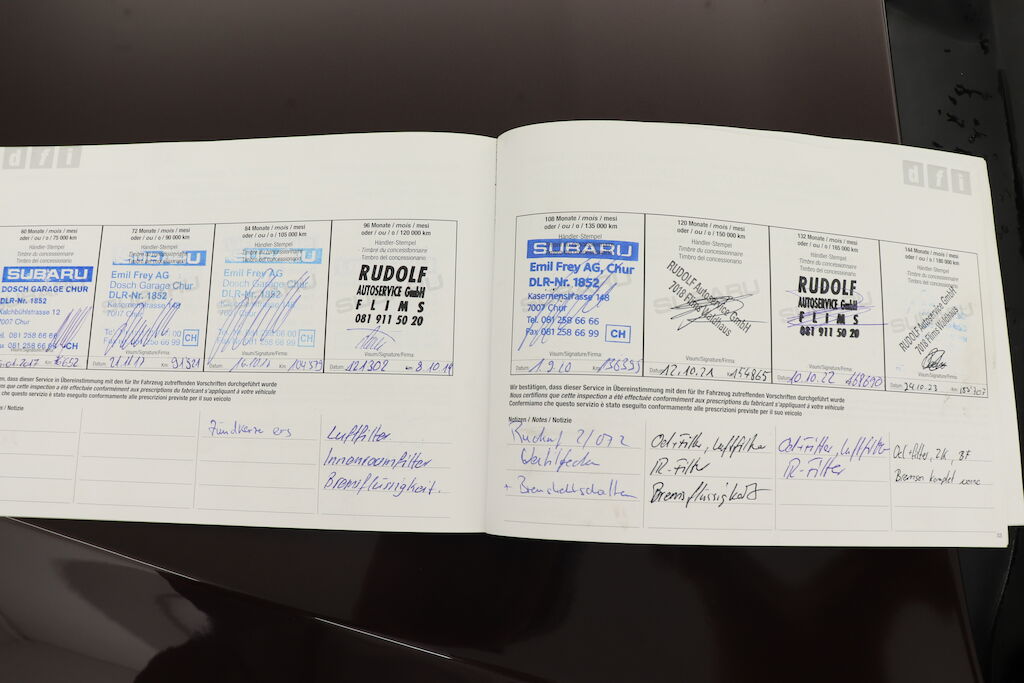 dfi
60 Monate / mois / mesi
oder / ou / o / 75 000 km
Händler-Stempel
Timbre du concessionnaire
Timbro del concessionario
SUBARU
DOSCH GARAGE CHUR
DLR-Nr. 1852
Kalchbühlstrasse 12
7007 Chur
081 258 66 66
081 258 66
CH
Visum/Signature/Firma
72 Monate / mois / mesi
oder / ou / o / 90 000 km
Händler-Stempel
Emil Frey AG
Dosch Garage Chur
DLR-Nr. 1852
Kasernenstrasse
7007 Chur
Tel. 081 258 66 66
Fax 081 258 66 99
CH
Visum/Signature/Firma
Datum
Km
84 Monate / mois / mesi
oder / ou / o / 105 000 km
Händler-Stempel
Emil Frey AG
Dosch Garage Chur
DLR-Nr. 1852
7007 Chur
CH
Visum/Signature/Firma
Datum
Km
96 Monate / mois / mesi
oder / ou / o / 120 000 km
Händler-Stempel
Timbre du concessionnaire
Timbro del concessionario
RUDOLF
AUTOSERVICE GmbH
FLIMS
081 911 50 20
Visum/Signature/Firma
Datum 121302 km 8.10.19
dass dieser Service in Übereinstimmung mit den für Ihr Fahrzeug zutreffenden Vorschriften durchgeführt wurde
que cette inspection a été effectuée conformément aux prescriptions du fabricant s'appliquant à votre véhicule
che questo servizio è stato eseguito conformamente alle prescrizioni previste per il suo veicolo
/ Notizie
Zündkerze ers
Luftfilter
Innenraumfilter
Bremsflüssigkeit.
dfi
108 Monate / mois / mesi
oder / ou / o / 135 000 km
SUBARU
Emil Frey AG, Chur
DLR-Nr. 1852
Kasernenstrasse 148
7007 Chur
Tel. 081 258 66 66
Fax 081 258 66 99
CH
Visum/Signature/Firma
Datum 1.9.20 Km 136395
120 Monate / mois / mesi
oder / ou / o / 150 000 km
Händler-Stempel
Timbre du concessionnaire
Timbro del concessionario
RUDOLF Autoservice GmbH
7018 Flims Waldhaus
Visum/Signature/Firma
Datum 12.10.21 Km 154865
132 Monate / mois / mesi
oder / ou / o / 165 000 km
Händler-Stempel
Timbre du concessionnaire
Timbro del concessionario
RUDOLF
AUTOSERVICE GmbH
FLIMS
081 911 50 20
Visum/Signature/Firma
Datum 10.10.22
144 Monate / mois / mesi
oder / ou / o / 180 000 km
Händler-Stempel
Timbre du concessionnaire
Timbro del concessionario
RUDOLF Autoservice GmbH
7018 Flims Waldhaus
Visum/Signature/Firma
Datum 24.10.23 Km
Wir bestätigen, dass dieser Service in Übereinstimmung mit den für Ihr Fahrzeug zutreffenden Vorschriften durchgeführt wurde
Nous certifions que cette inspection a été effectuée conformément aux prescriptions du fabricant s'appliquant à votre véhicule
Confermiamo che questo servizio è stato eseguito conformamente alle prescrizioni previste per il suo veicolo
Notizen / Notes / Notizie
Oel+Filter, Luftfilter
IR-Filter
Bremsflüssigkeit
Oel+Filter, Luftfilter
IR-Filter
Oel+Filter, ZK, BF
Bremsen komplet